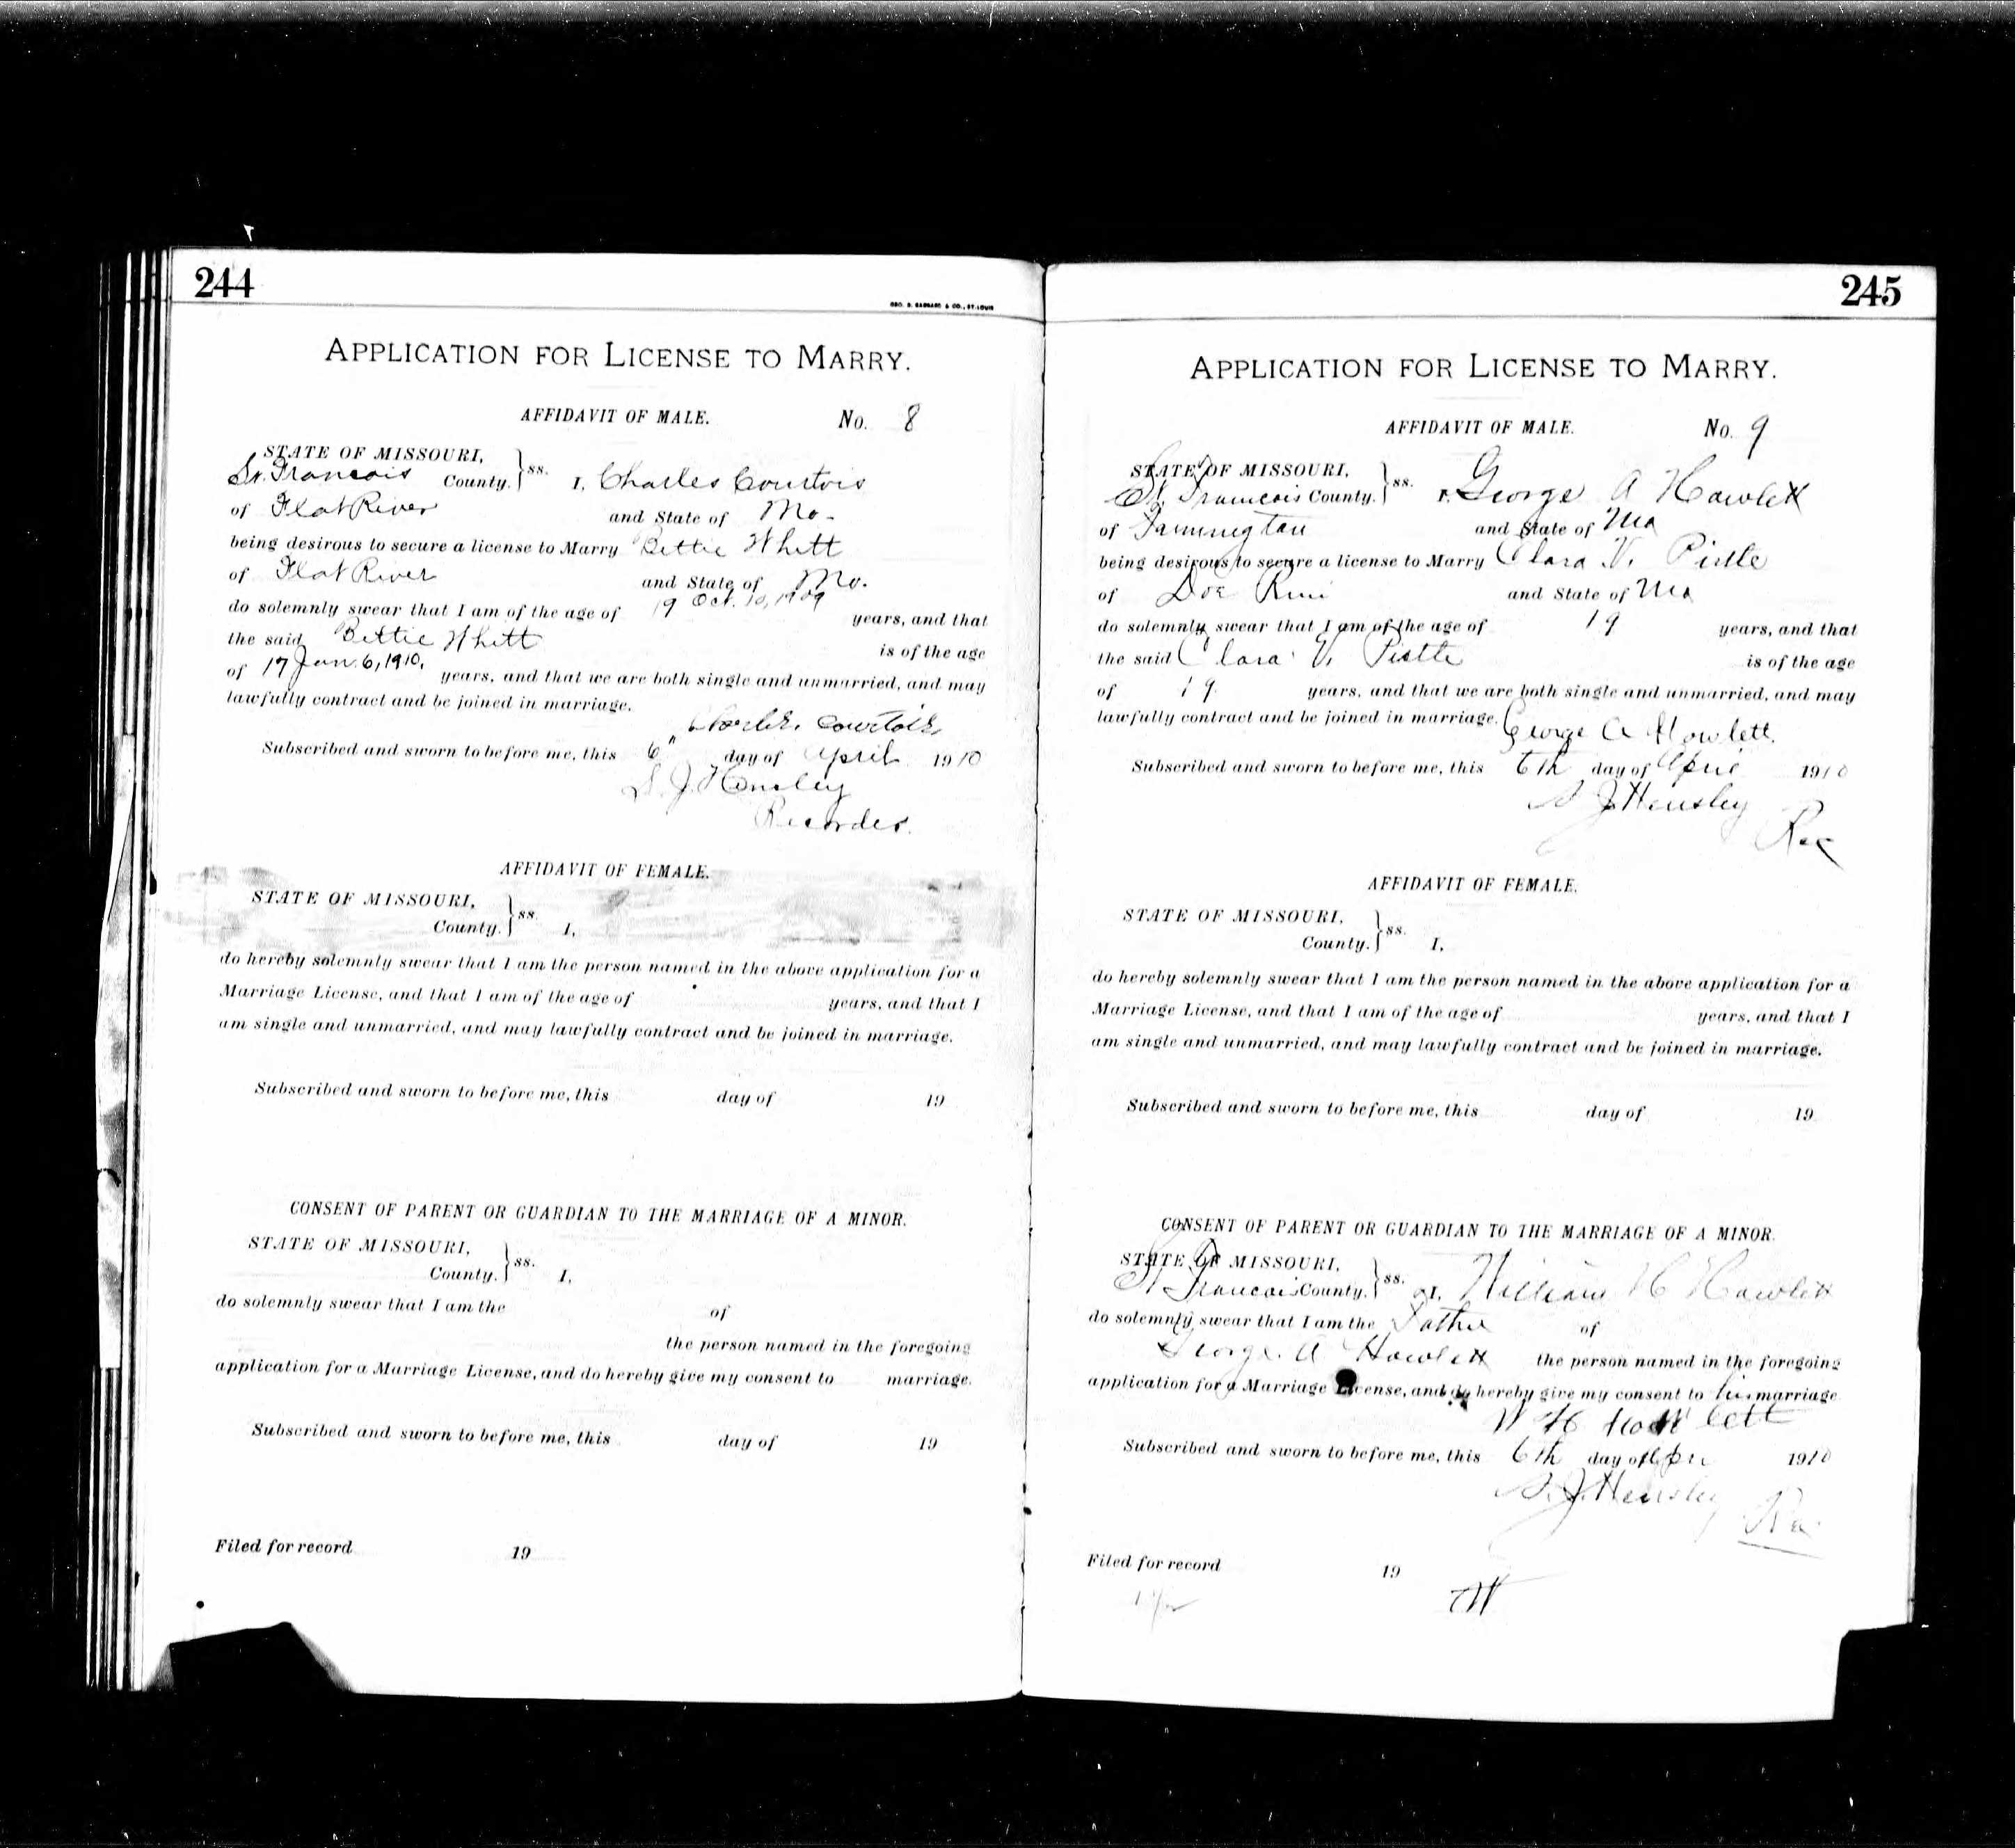 244
GEO. D. BARNARD & CO., ST. LOUIS
APPLICATION FOR LICENSE TO MARRY.
AFFIDAVIT OF MALE. No. 8
STATE OF MISSOURI,
St. Francois County. } ss. I, Charles Courtois
of Flat River and State of Mo.
being desirous to secure a license to Marry Bettie Whitt
of Flat River and State of Mo.
do solemnly swear that I am of the age of 19 Oct. 10, 1909 years, and that
the said Bettie Whitt is of the age
of 17 Jan. 6, 1910, years, and that we are both single and unmarried, and may
lawfully contract and be joined in marriage.
Charles Courtois
Subscribed and sworn to before me, this 6" day of April 1910
S. J. Hensley
Recorder.
AFFIDAVIT OF FEMALE.
STATE OF MISSOURI,
County. } ss. I,
do hereby solemnly swear that I am the person named in the above application for a
Marriage License, and that I am of the age of years, and that I
am single and unmarried, and may lawfully contract and be joined in marriage.
Subscribed and sworn to before me, this day of 19
CONSENT OF PARENT OR GUARDIAN TO THE MARRIAGE OF A MINOR.
STATE OF MISSOURI,
County. } ss. I,
do solemnly swear that I am the of
the person named in the foregoing
application for a Marriage License, and do hereby give my consent to marriage.
Subscribed and sworn to before me, this day of 19
Filed for record 19
245
APPLICATION FOR LICENSE TO MARRY.
AFFIDAVIT OF MALE. No. 9
STATE OF MISSOURI,
St. Francois County. } ss. I, George A Howlett
of Farmington and State of Mo
being desirous to secure a license to Marry Clara V.
of Doe Run and State of Mo
do solemnly swear that I am of the age of 19 years, and that
the said Clara V. is of the age
of 19 years, and that we are both single and unmarried, and may
lawfully contract and be joined in marriage.
George A Howlett.
Subscribed and sworn to before me, this 6th day of April 1910
S J Hensley
Rec
AFFIDAVIT OF FEMALE.
STATE OF MISSOURI,
County. } ss. I,
do hereby solemnly swear that I am the person named in the above application for a
Marriage License, and that I am of the age of years, and that I
am single and unmarried, and may lawfully contract and be joined in marriage.
Subscribed and sworn to before me, this day of 19
CONSENT OF PARENT OR GUARDIAN TO THE MARRIAGE OF A MINOR.
STATE OF MISSOURI,
St Francois County. } ss. I, William H Howlett
do solemnly swear that I am the Father of
George A Howlett the person named in the foregoing
application for a Marriage License, and do hereby give my consent to his marriage
W H Howlett
Subscribed and sworn to before me, this 6th day of Apri 1910
S. J. Hensley
Rec
Filed for record 19